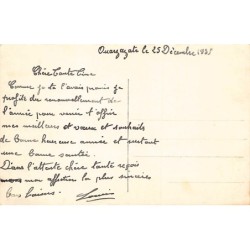 Ouarzazate le 25 Décembre 1938
Chère tante
Comme je te l'avais promis je
profite du renouvellement de
l'année pour venir t'offrir
mes meilleurs et vœux et souhaits
de bonne heureuse année et surtout
une bonne santée.
Dans l'attente chère tante reçois
mon affection la plus sincère
bons baisers.